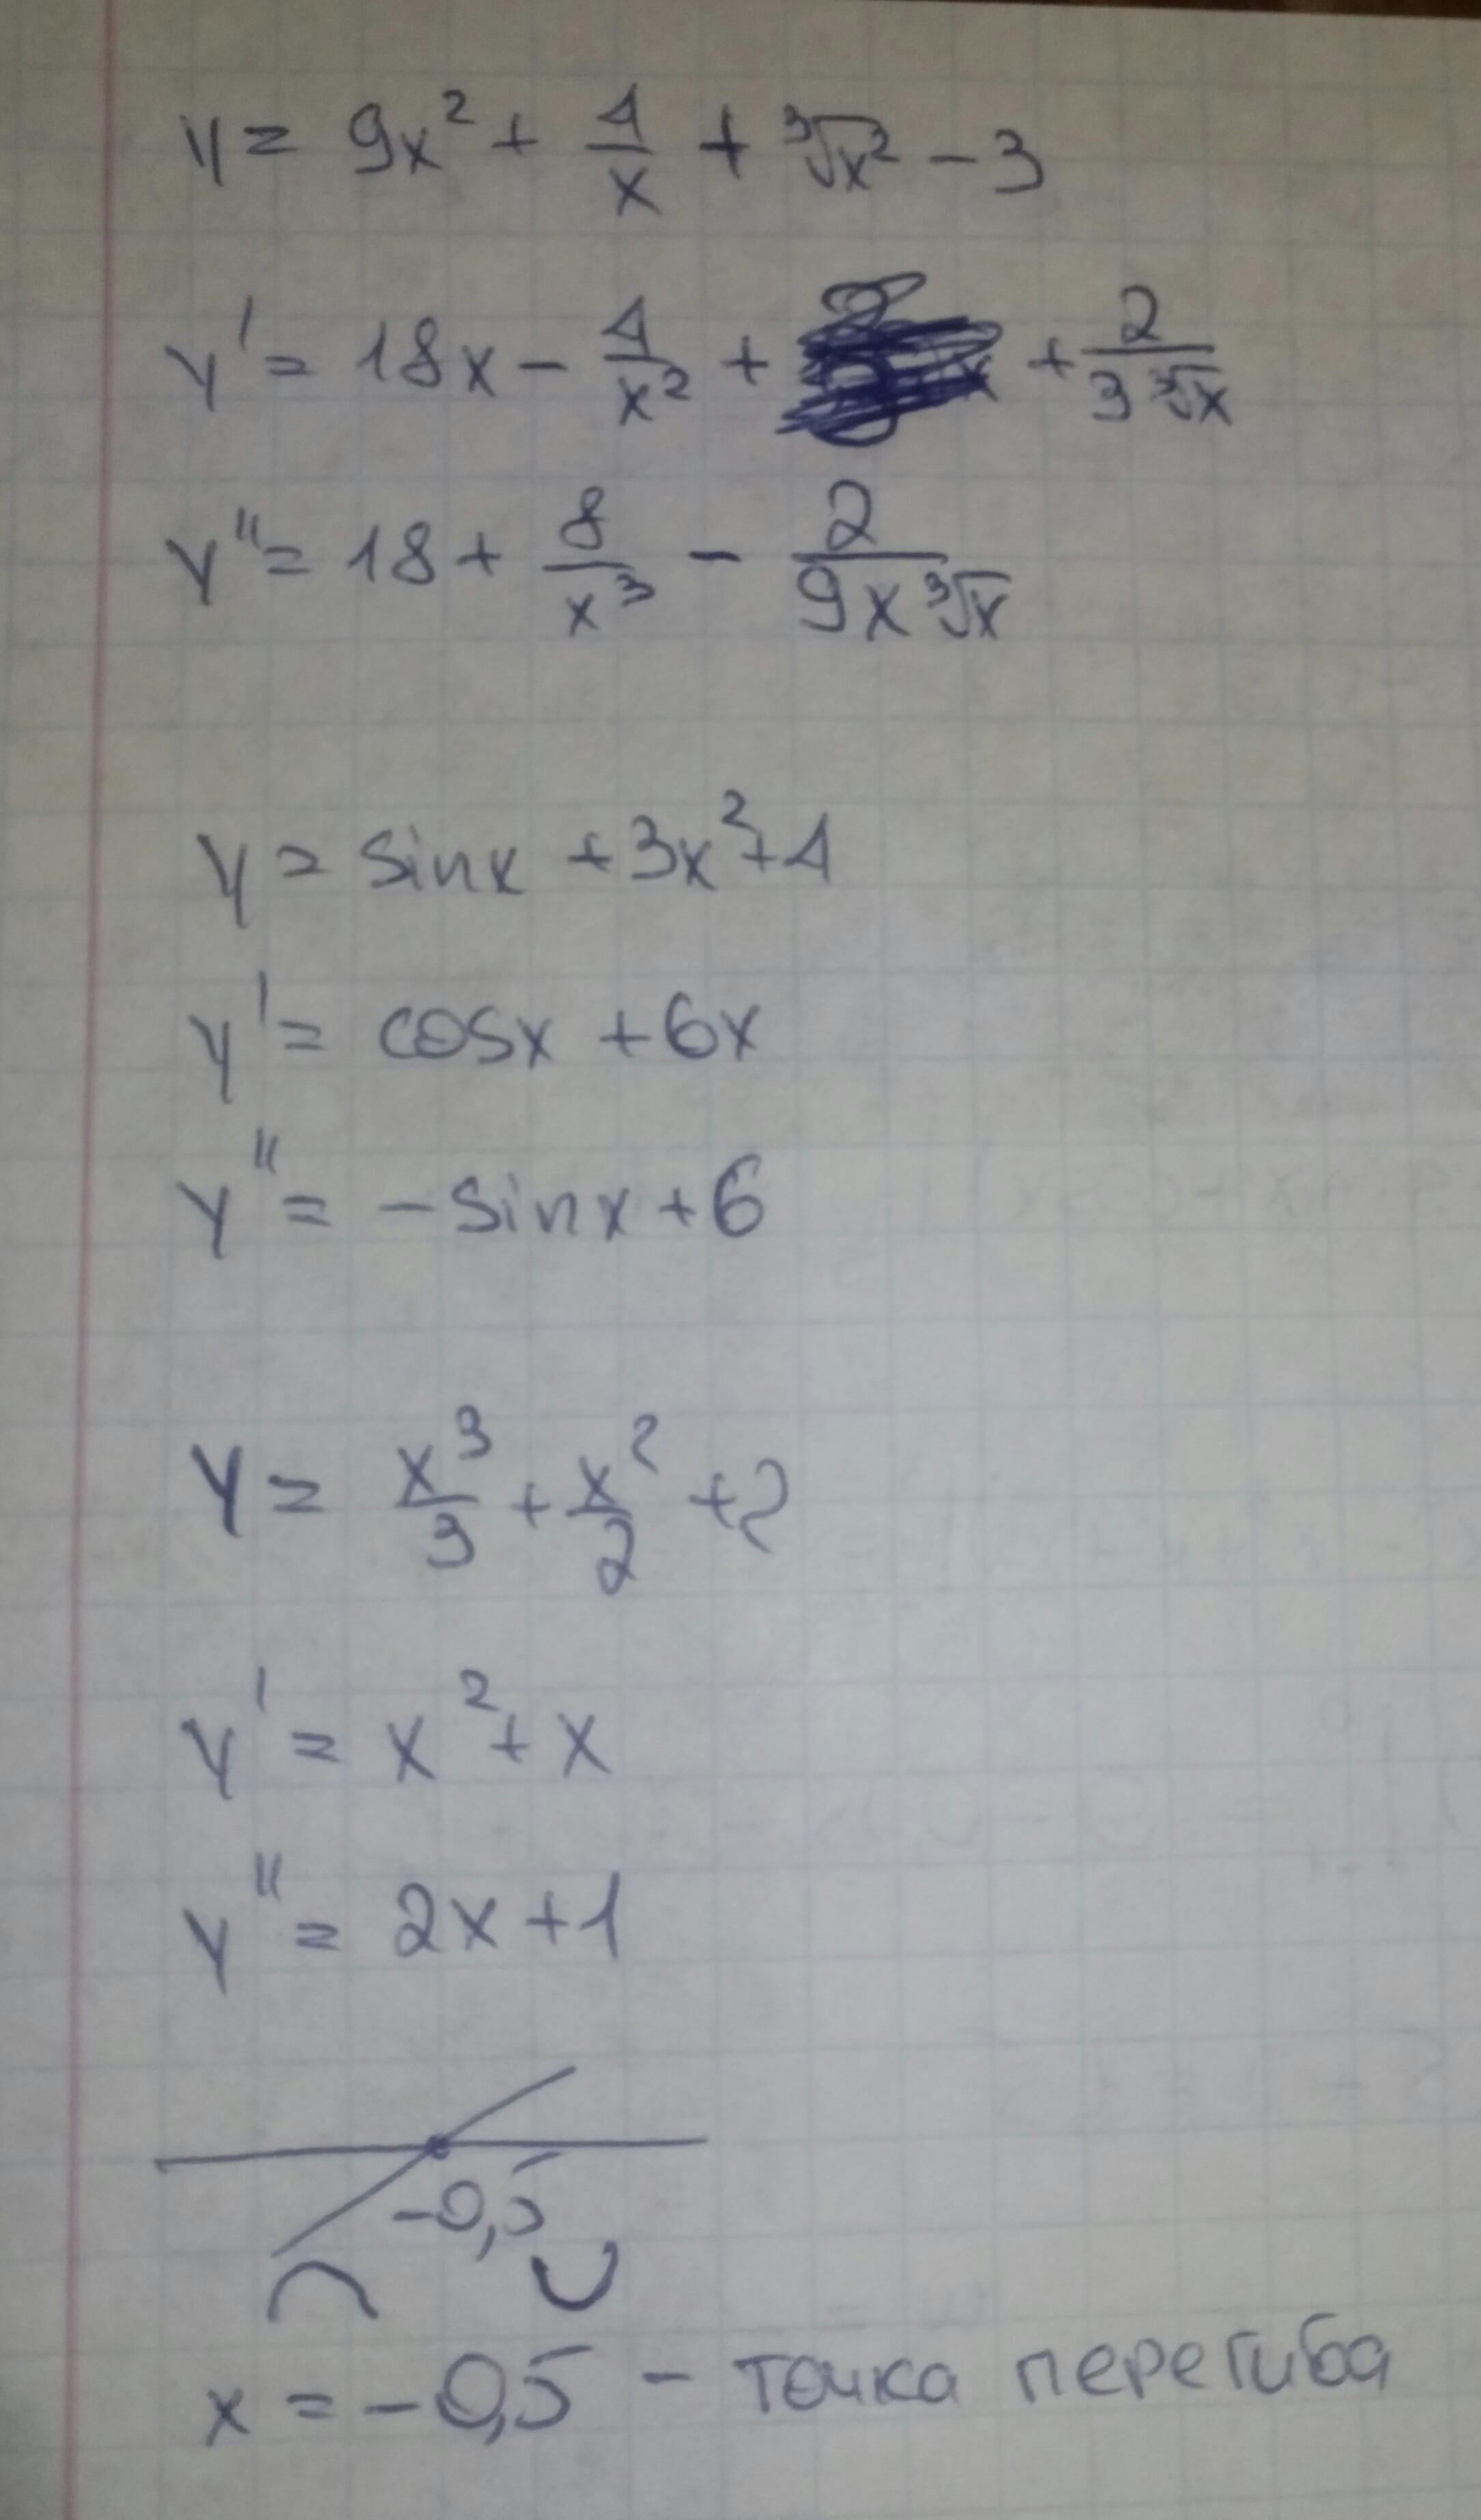 y = 9x² + 4/x + ∛x² − 3
y' = 18x − 4/x² + + 2/(3∛x)
y'' = 18 + 8/x³ − 2/(9x∛x)
y = sinx + 3x² + 4
y' = cosx + 6x
y'' = −sinx + 6
y = x³/3 + x²/2 + 2
y' = x² + x
y'' = 2x + 1
−0,5
x = −0,5 − точка перегиба